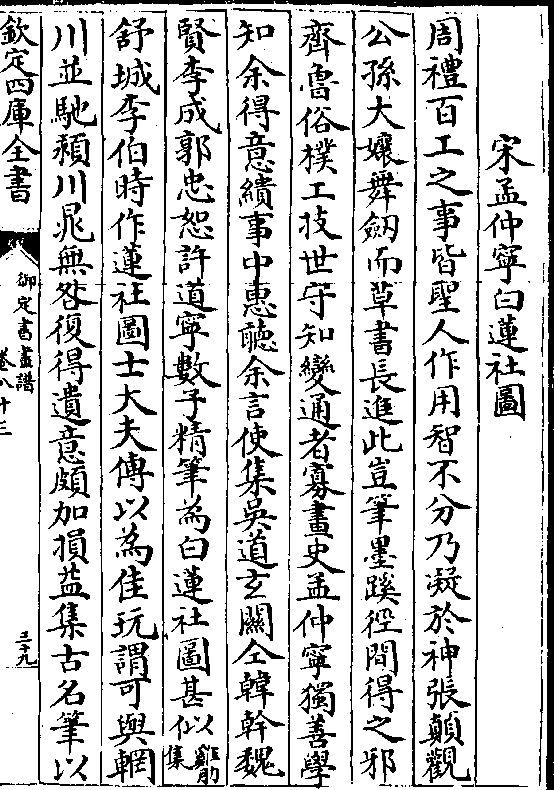 宋孟仲寧白蓮社圖
周禮百工之事皆聖人作用智不分乃凝於神張顛觀
公孫大孃舞劒而草書長進此豈筆墨蹊徑間得之邪
齊魯俗樸工技世守知變通者寡畫史孟仲寧獨善學
知余得意繢事中惠聽余言使集吳道玄關仝韓幹魏
賢李成郭忠恕許道寧數子精筆為白蓮社圖甚似雞肋集
舒城李伯時作蓮社圖士大夫傳以為佳玩謂可與輞
川並馳潁川晁無咎復得遺意頗加損益集古名筆以
欽定四庫全書
御定書畫譜
卷八十三
三十九